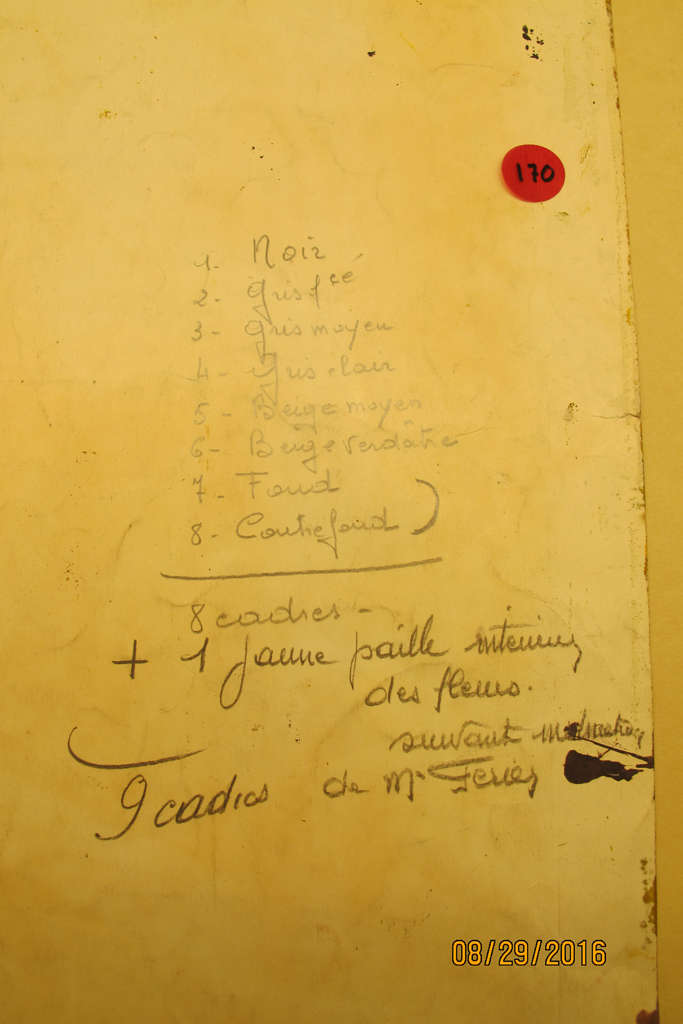 170
1. Noir
2- Gris fcé
3- Gris moyen
4- Gris clair
5- Beige moyen
6- Beige verdâtre
7- Fond
8- Contrefond )
8 cadres -
+ 1 jaune paille intérieur
des fleurs.
suivant instruction
9 cadres de Mr
08/29/2016